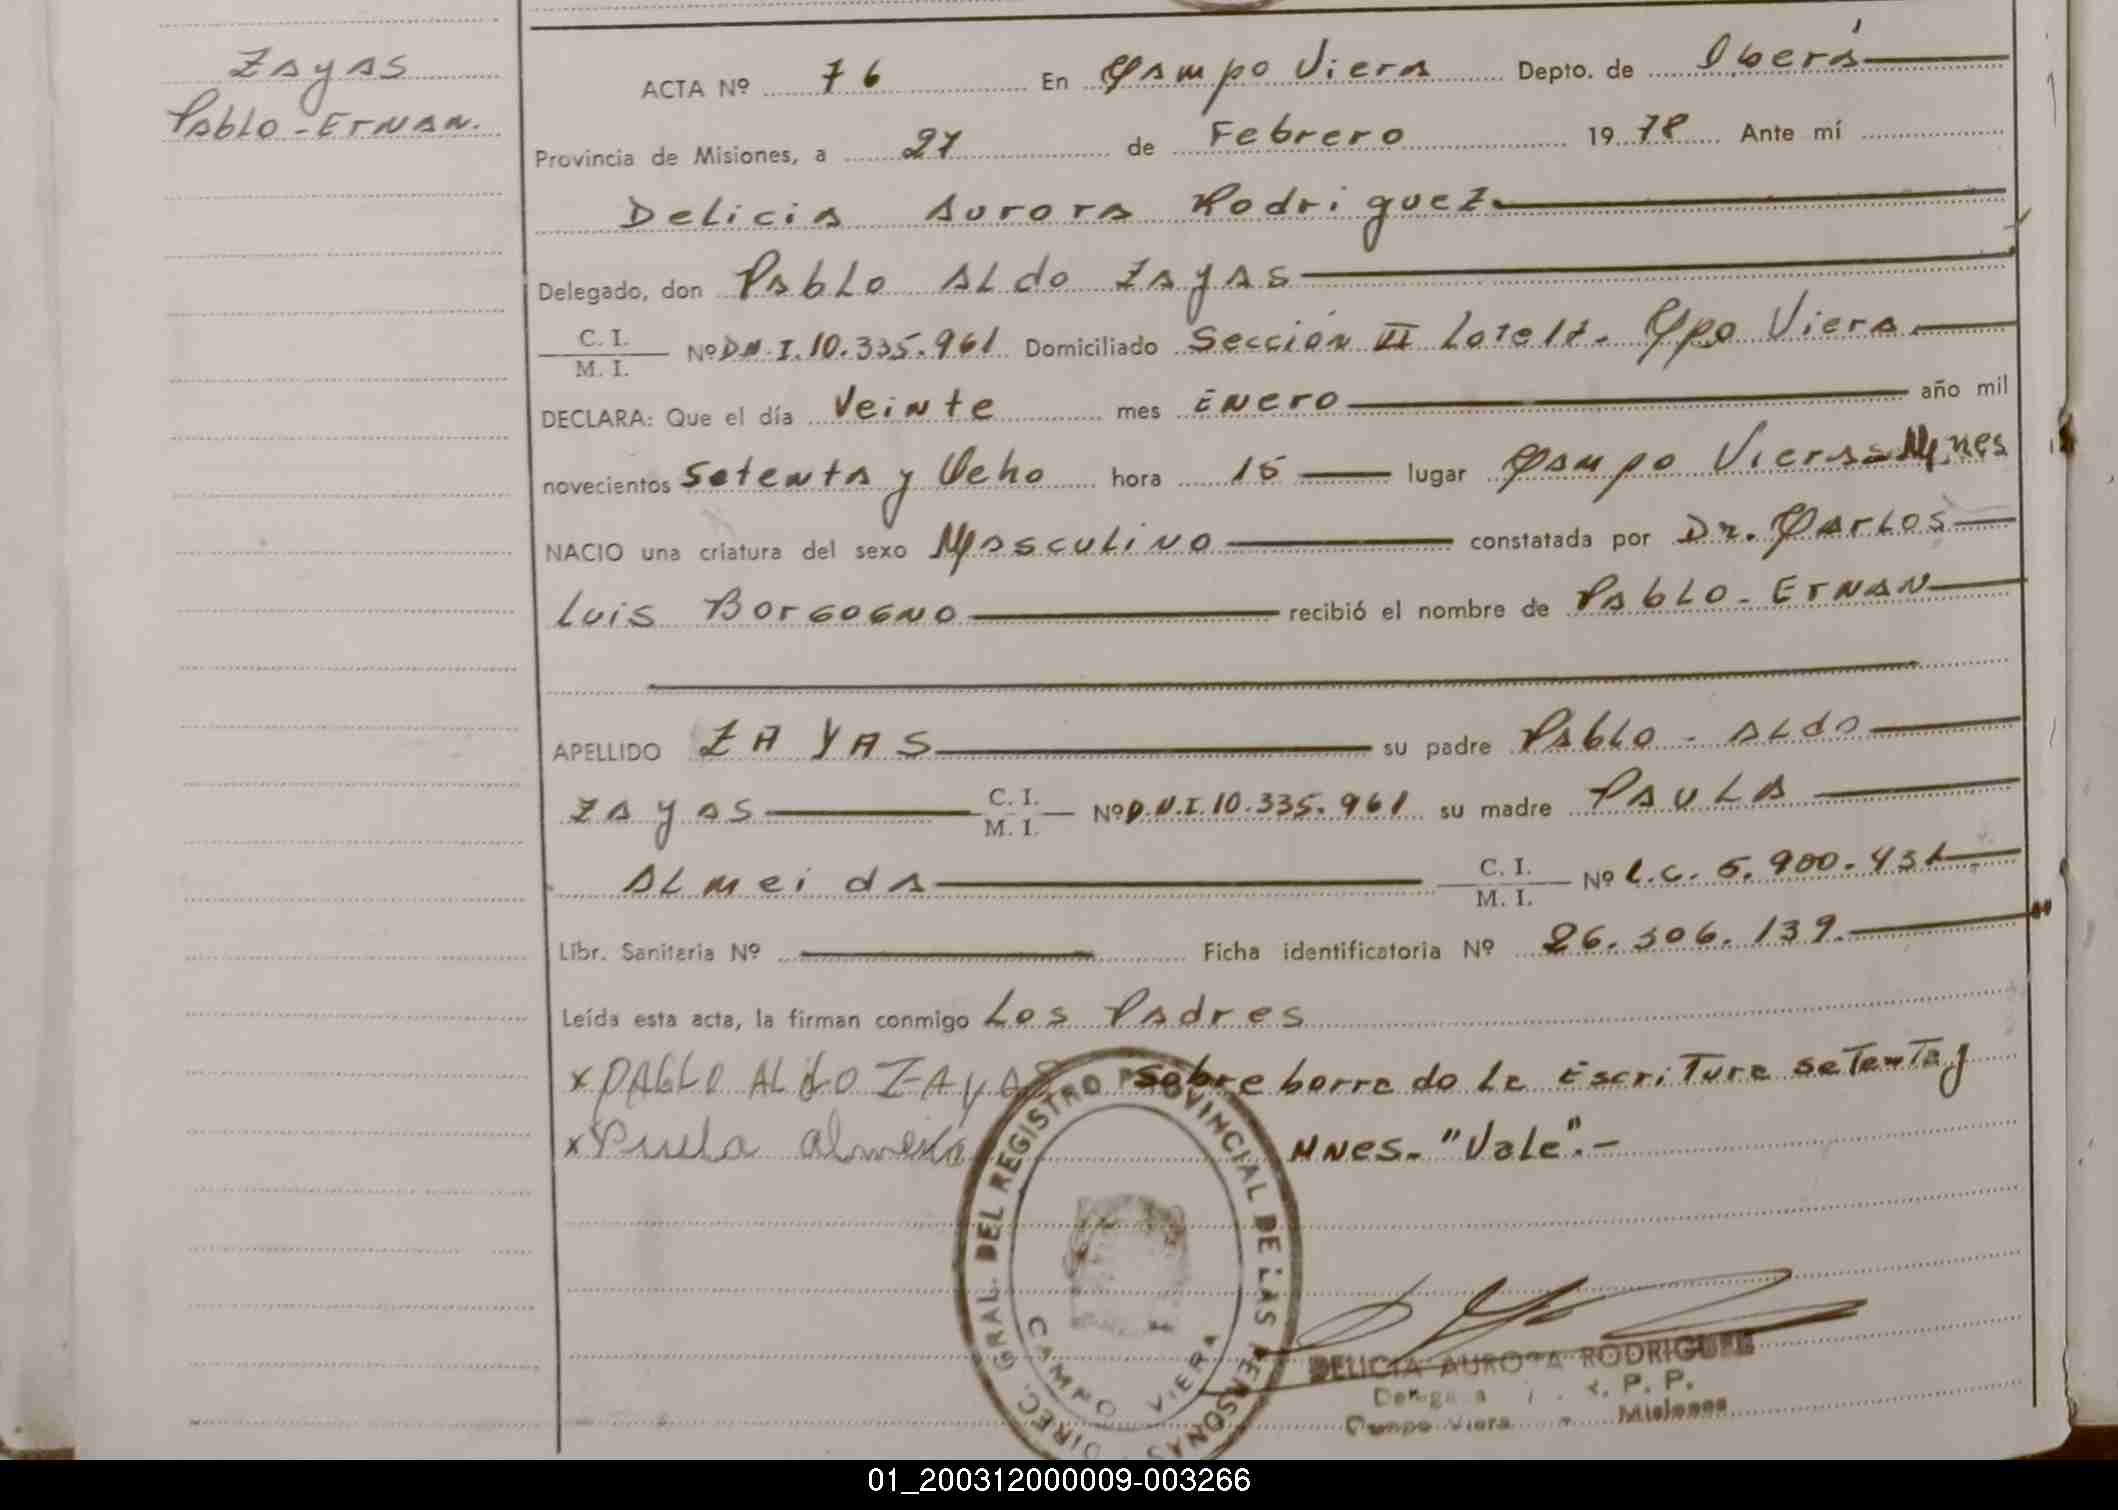 Zayas
Pablo-Ernan.
ACTA Nº 76 En Campo Viera Depto. de Oberá
Provincia de Misiones, a 27 de Febrero 1978 Ante mí
Delicia Aurora Rodriguez
Delegado, don Pablo Aldo Zayas
C. I.
M. I. Nº D.N.I. 10.335.961 Domiciliado Sección II Lote Cpo Viera
DECLARA: Que el día Veinte mes Enero año mil
novecientos Setenta y Ocho hora 15 lugar Campo Viera-Mnes
NACIO una criatura del sexo Masculino constatada por Dr. Carlos
Luis Borgogno recibió el nombre de Pablo-Ernan
APELLIDO ZAYAS su padre Pablo-Aldo
Zayas C. I.
M. I. Nº D.N.I. 10.335.961 su madre Paula
Almeida C. I.
M. I. Nº L.C. 5.900.431
Libr. Sanitaria Nº Ficha identificatoria Nº 26.306.139.
Leída esta acta, la firman conmigo Los Padres
x PABLO ALDO ZAYAS Sobre borrado la Escritura setenta y
x Paula Almeida Mnes. "Vale".-
DIREC. GRAL. DEL REGISTRO PROVINCIAL DE LAS PERSONAS
CAMPO VIERA
DELICIA AURORA RODRIGUEZ
R. P. P.
Campo Viera Misiones
01_200312000009-003266